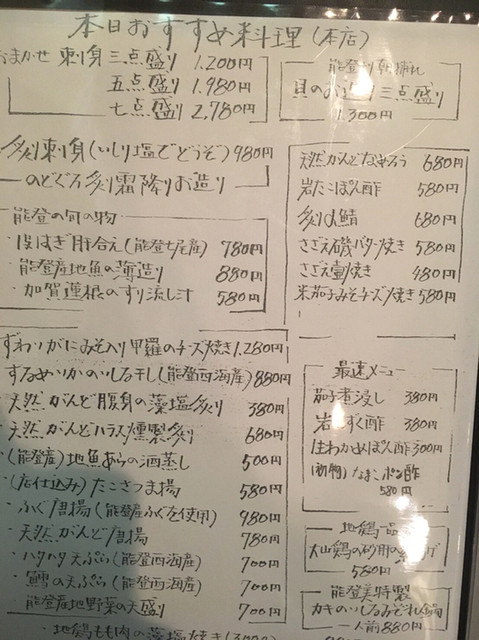 本日おすすめ料理(本店)
おまかせ 刺身 三点盛り 1.200円
五点盛り 1.980円
七点盛り 2.780円
能登 朝捕れ
貝のお造り三点盛り
1.300円
炙り刺身(いしり塩でどうぞ) 980円
のどぐろ炙り霜降りお造り
天然がんどなめろう 680円
岩だこぽん酢 580円
炙り〆鯖 680円
さざえ磯バター焼き 580円
さざえ壷焼き 480円
米茄子みそチーズ焼き 580円
能登の旬の物
はぎ肝合え(能登七尾産) 780円
・能登産地魚の薄造り 880円
・加賀蓮根のすり流し汁 580円
ずわいがにみそ入り甲羅のチーズ焼き 1.280円
するめいかのいしる干し(能登西海産) 880円
天然がんど腹身の藻塩炙り 380円
天然がんどハラス燻製炙り 680円
(能登産)地魚あらの酒蒸し 500円
(店仕込み)たこさつま揚 580円
・ふぐ唐揚(能登産ふぐを使用) 980円
・天然がんど唐揚 780円
・ハタハタ天ぷら(能登西海産) 700円
・鱈の天ぷら(能登西海産) 700円
能登産地野菜の天盛り 700円
・地鶏もも肉の藻塩焼き
最速メニュー
茄子煮浸し 380円
岩もずく酢 380円
生わかめぽん酢 300円
(初物)なまこポン酢
580円
地鶏一品
大山鶏の砂肝の
580円
能登美特製
カキのいしるみぞれ鍋
一人前880円